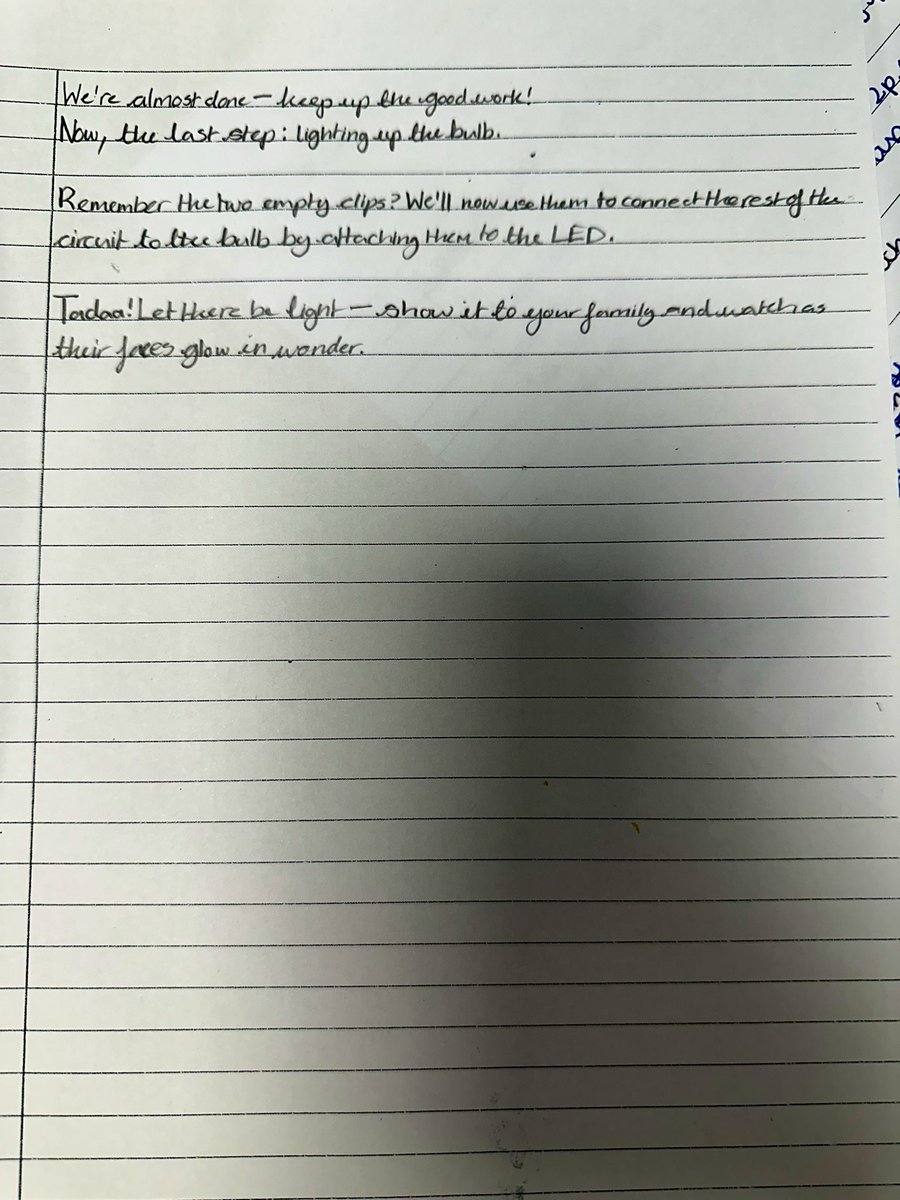 We're almost done – keep up the good work!
Now, the last step: lighting up the bulb.
Remember the two empty clips? We'll now use them to connect the rest of the
circuit to the bulb by attaching them to the LED.
Tadaa! Let there be light – show it to your family and watch as
their faces glow in wonder.